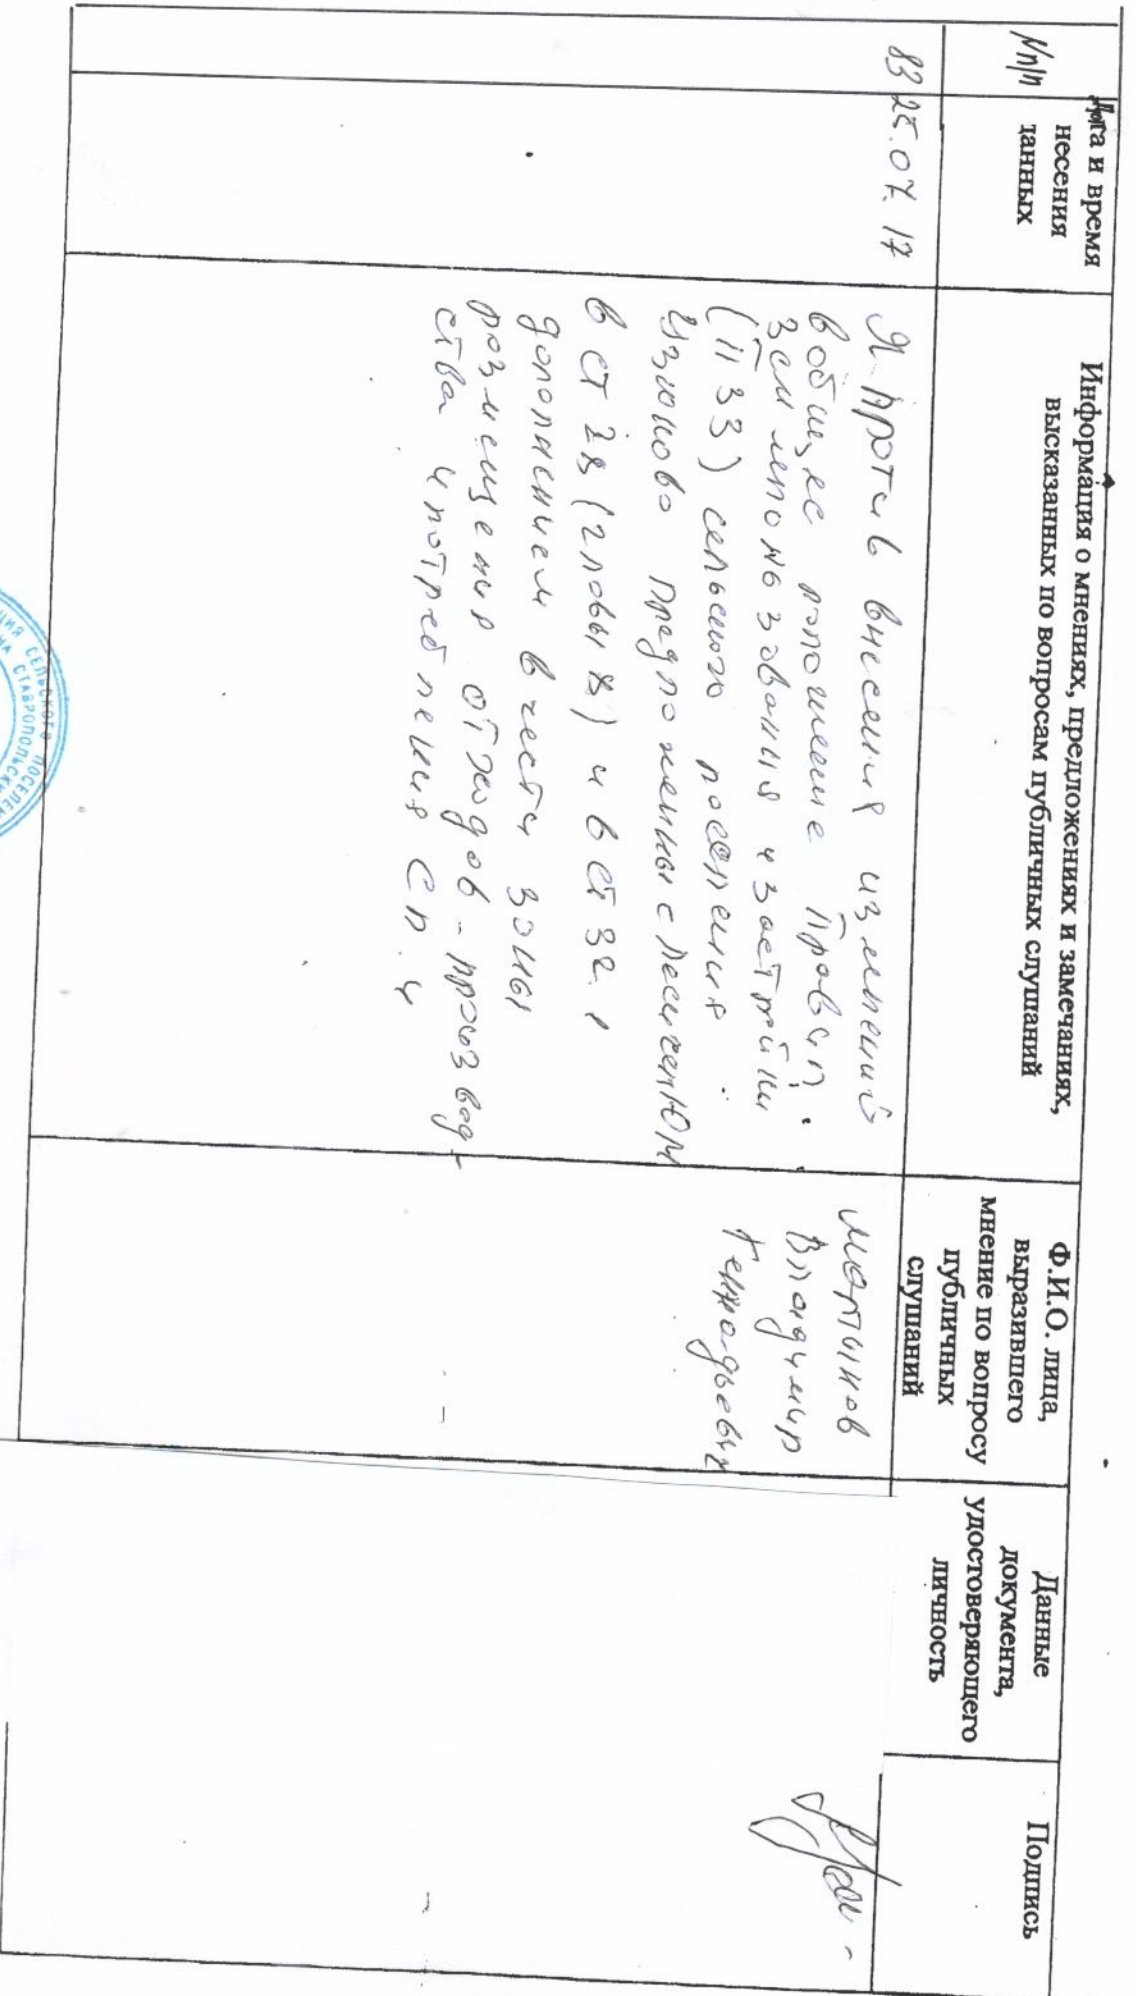 №п/п
Дата и время
несения
данных
Информация о мнениях, предложениях и замечаниях,
высказанных по вопросам публичных слушаний
Ф.И.О. лица,
выразившего
мнение по вопросу
публичных
слушаний
Данные
документа,
удостоверяющего
личность
Подпись
83
25.07.17
Я против внесения изменений
в общее положение Правил
землепользования и застройки
(ПЗЗ) сельского поселения
Узюково предложенных с Лесичел
в ст 28 (главы 8) и в ст 32.1
дополнением в части зоны
размещения отходов производ-
ства и потребления СП. 4
Мартынов
Владимир
Геннадьевич
СЕЛЬСКОГО ПОСЕЛЕН
СТАВРОПОЛЬСКИ